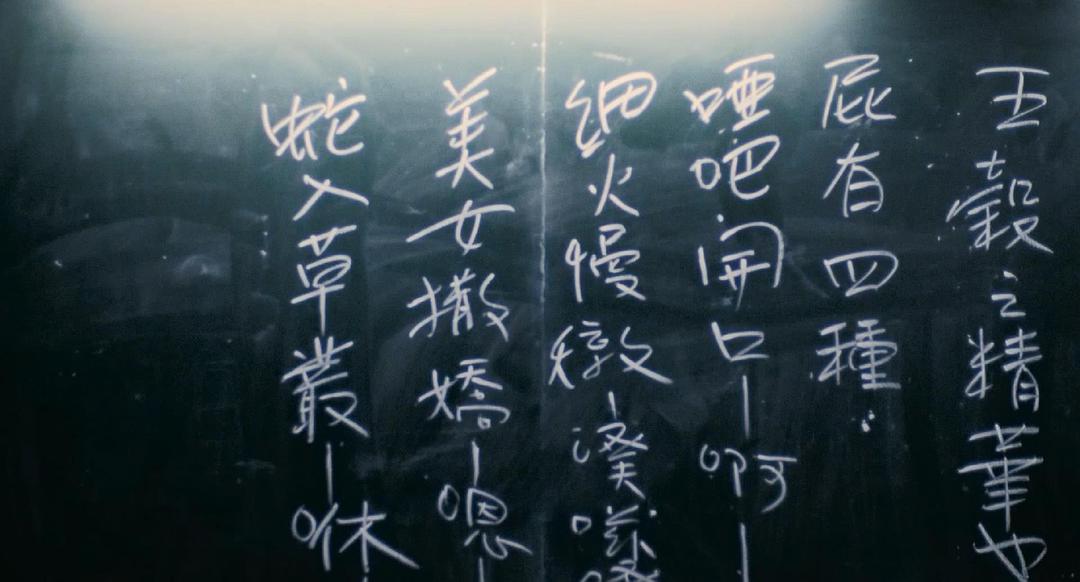 五穀之精華也
屁有四種:
啞吧開口—啊—
細火慢燉—
美女撒嬌—嗯—
蛇入草叢—咻